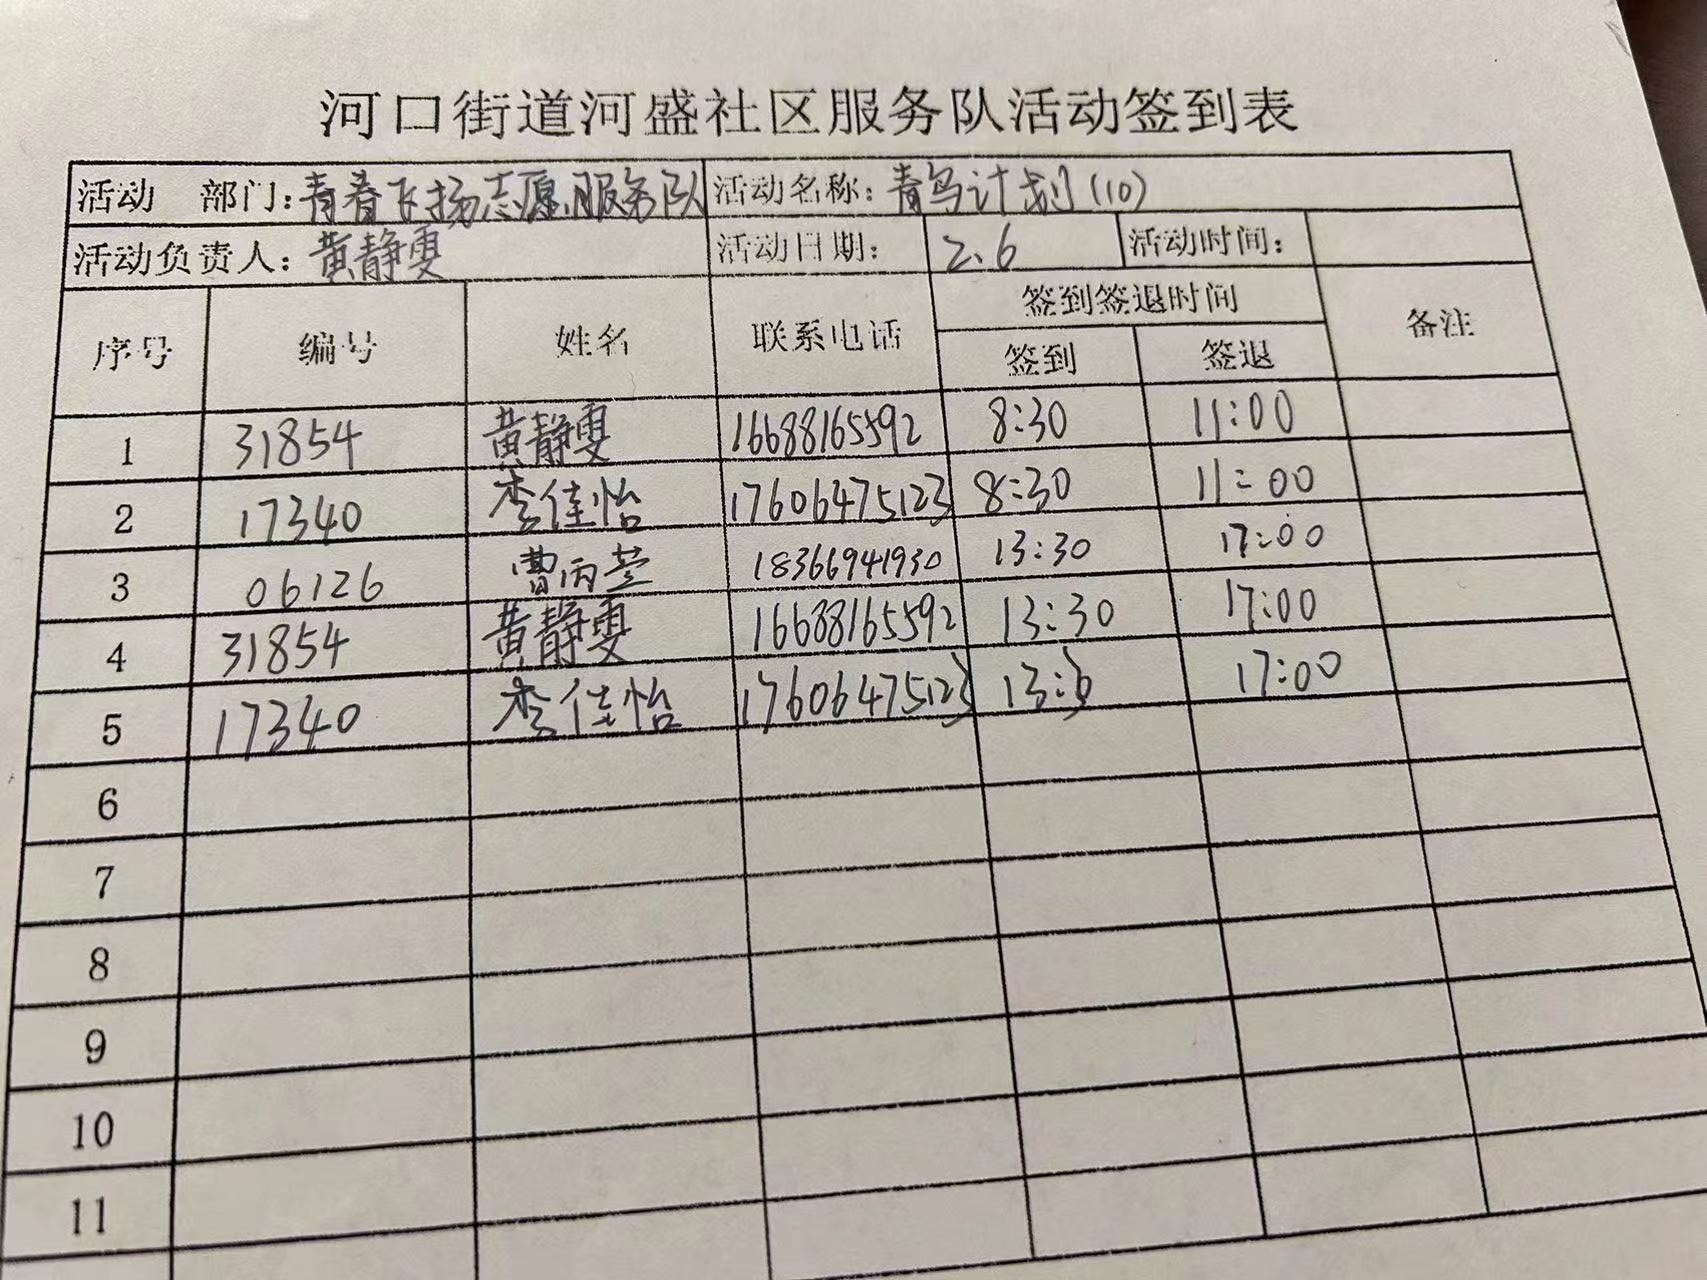 河口街道河盛社区服务队活动签到表
活动 部门：青春飞扬志愿服务队 活动名称：青鸟计划(10)
活动负责人：黄静雯 活动日期： 2.6 活动时间：
序号 编号 姓名 联系电话 签到签退时间 备注
签到 签退
1 31854 黄静雯 16688165592 8:30 11:00
2 17340 李佳怡 17606475123 8:30 11:00
3 06126 曹丙萱 18366941930 13:30 17:00
4 31854 黄静雯 16688165592 13:30 17:00
5 17340 李佳怡 17606475123 17:00
6
7
8
9
10
11